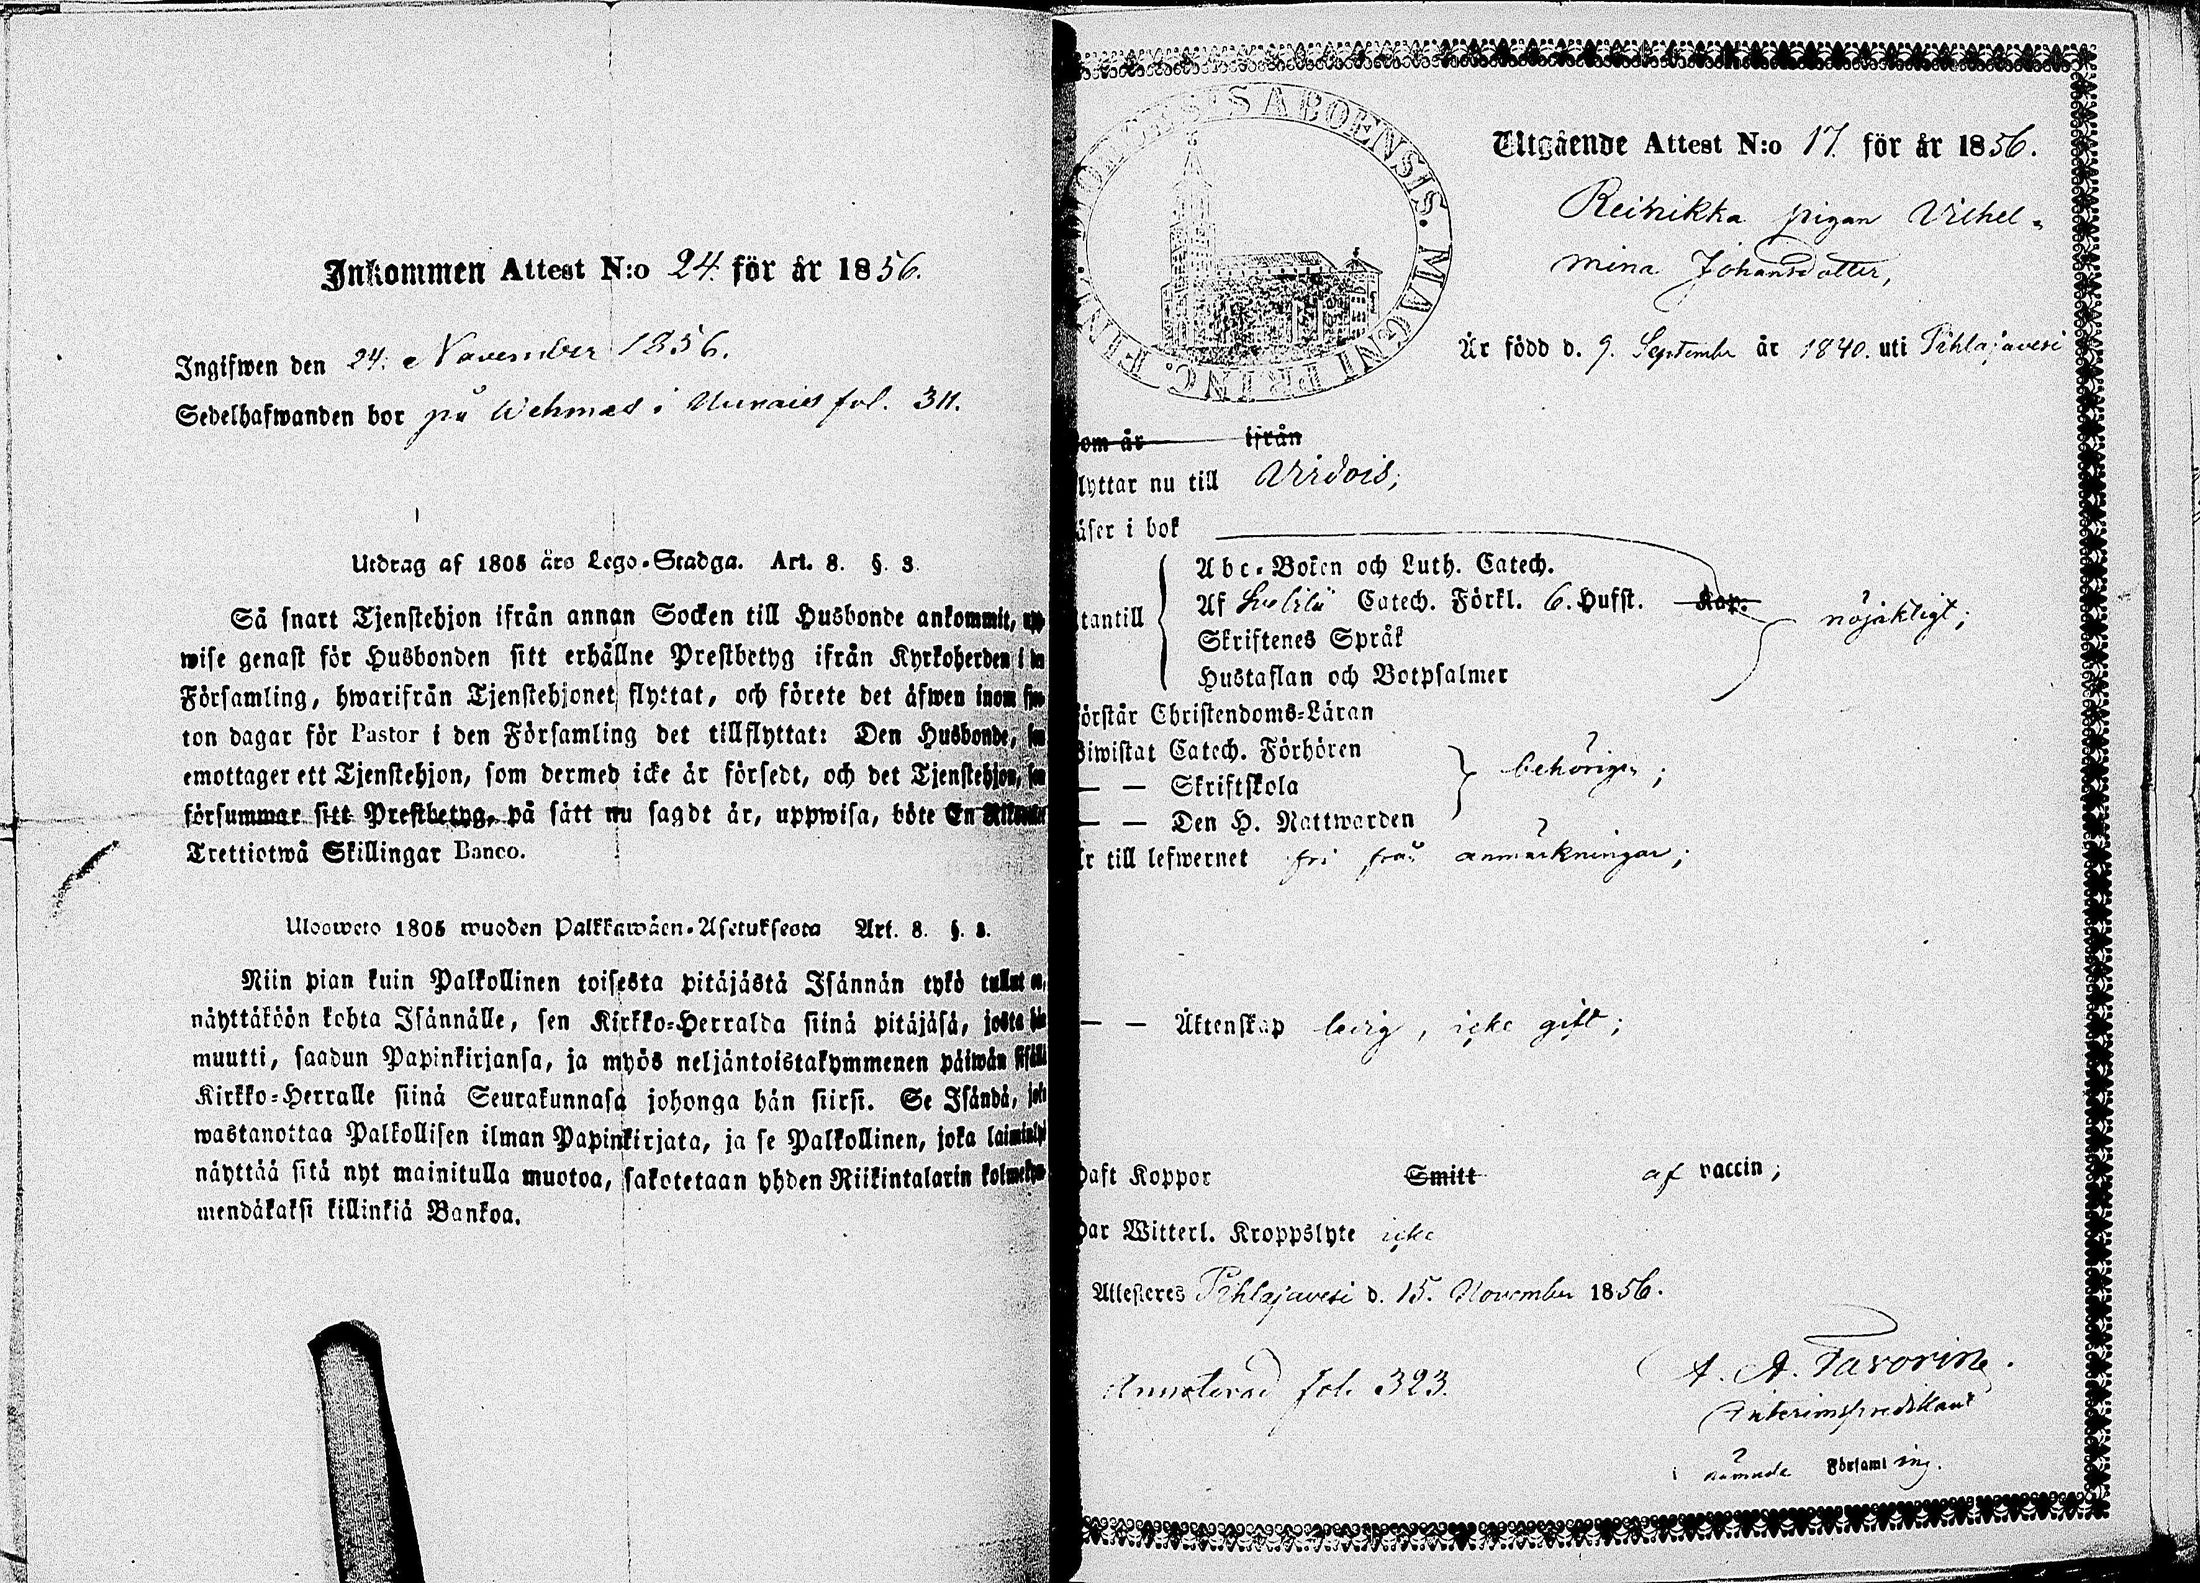 Inkommen Attest N:o 24. för år 1856.
Ingifwen den 24. November 1856.
Sedelhafwanden bor på Wehmas i fol. 311.
Utdrag af 1805 års Lego-Stadga. Art. 8. §. 3.
Så snart Tjenstehjon ifrån annan Socken till Husbonde ankommit, upp-
wise genast för Husbonden sitt erhållne Prestbetyg ifrån Kyrkoherden i
Församling, hwarifrån Tjenstehjonet flyttat, och förete det äfwen inom
ton dagar för Pastor i den Församling det tillflyttat: Den Husbonde,
emottager ett Tjenstehjon, som dermed icke är försedt, och det Tjenstehjon,
försummar sitt Prestbetyg, på sätt nu sagdt är, uppwisa, böte En
Trettiotwå Skillingar Banco.
Ulosweto 1805 wuoden Palkkawäen-Asetuksesta Art. 8. §. 3.
Niin pian kuin Palkollinen toisesta pitäjästä Isännän tykö tullut on,
näyttäköön kohta Isännälle, sen Kirkko-Herralda siinä pitäjäsä, josta hän
muutti, saadun Papinkirjansa, ja myös neljäntoistakymmenen päiwän sisällä
Kirkko-Herralle siinä Seurakunnasa johonga hän siirsi. Se Isändä, joka
wastanottaa Palkollisen ilman Papinkirjata, ja se Palkollinen, joka
näyttää sitä nyt mainitulla muotoa, sakotetaan yhden Riikintalarin kolmekym-
mendäkaksi killinkiä Bankoa.
DIOECESIS ABOENSIS. MAGNI PRINC. FINL.
Utgående Attest N:o 17. för år 1856.
Reinikka pigan Vilhel-
mina Johansdotter,
Är född d. 9. September år 1840. uti Pihlajavesi
om är ifrån
lyttar nu till Virdois;
äser i bok
Abc-Boken och Luth. Catech.
tantill Af Svebilii Catech. Förkl. 6. Hufst. Kap. nöjaktigt;
Skriftenes Språk
Hustaflan och Botpsalmer
örstår Christendoms-Läran
iwistat Catech. Förhören
— — Skriftskola behörigen;
— — Den H. Nattwarden
r till lefwernet fri från anmärkningar;
— — Äktenskap ledig, icke gift;
aft Koppor Smitt af vaccin;
ar Witterl. Kroppslyte icke
Attesteres Pihlajavesi d. 15. November 1856.
Annoterad fol. 323.
A. A. Favorin.
Interimspredikant
i nämnde Församling.